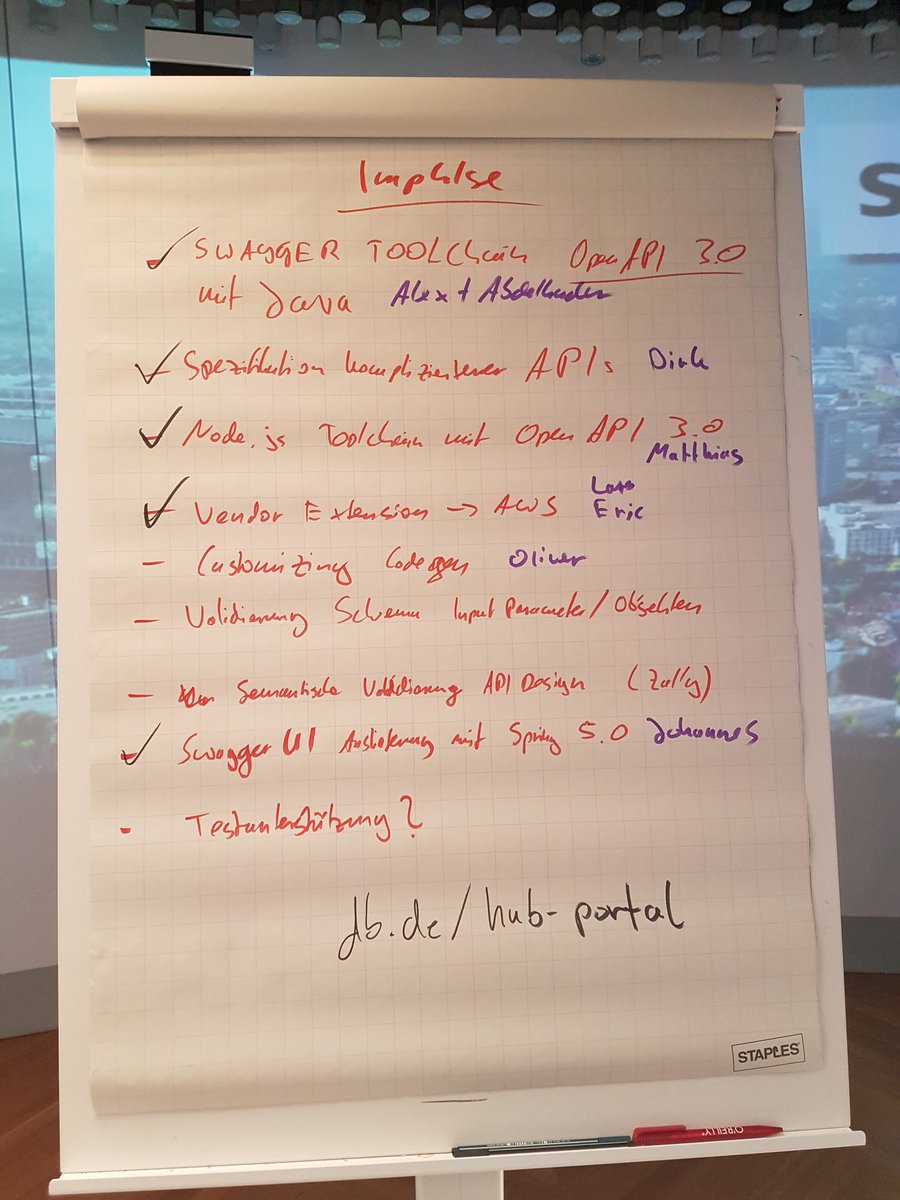 Impulse
✓ SWAGGER TOOLChain OpenAPI 3.0
mit Java Alex + Abdelkader
✓ Spezifikation komplizierterer APIs Dirk
✓ Node.js Toolchain mit Open API 3.0
Matthias
Lars
✓ Vendor Extension -> AWS Eric
- Customizing Codegen Oliver
- Validierung Schema Input Parameter/Objekten
- Semantische Validierung API Design (Zally)
✓ Swagger UI Auslieferung mit Spring 5.0 Johannes
- Testunterstützung?
db.de/hub-portal
STAPLES
O'REILLY